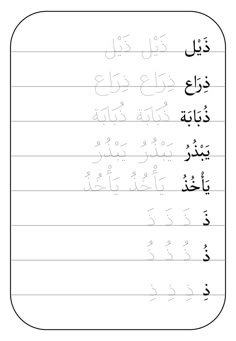 ذَيْل ذَيْل ذَيْل
ذِرَاع ذِرَاع ذِرَاع
ذُبَابَة ذُبَابَة ذُبَابَة
يَبْذُرُ يَبْذُرُ يَبْذُرُ
يَأْخُذُ يَأْخُذُ يَأْخُذُ
ذَ ذَ ذَ ذَ
ذُ ذُ ذُ ذُ
ذِ ذِ ذِ ذِ